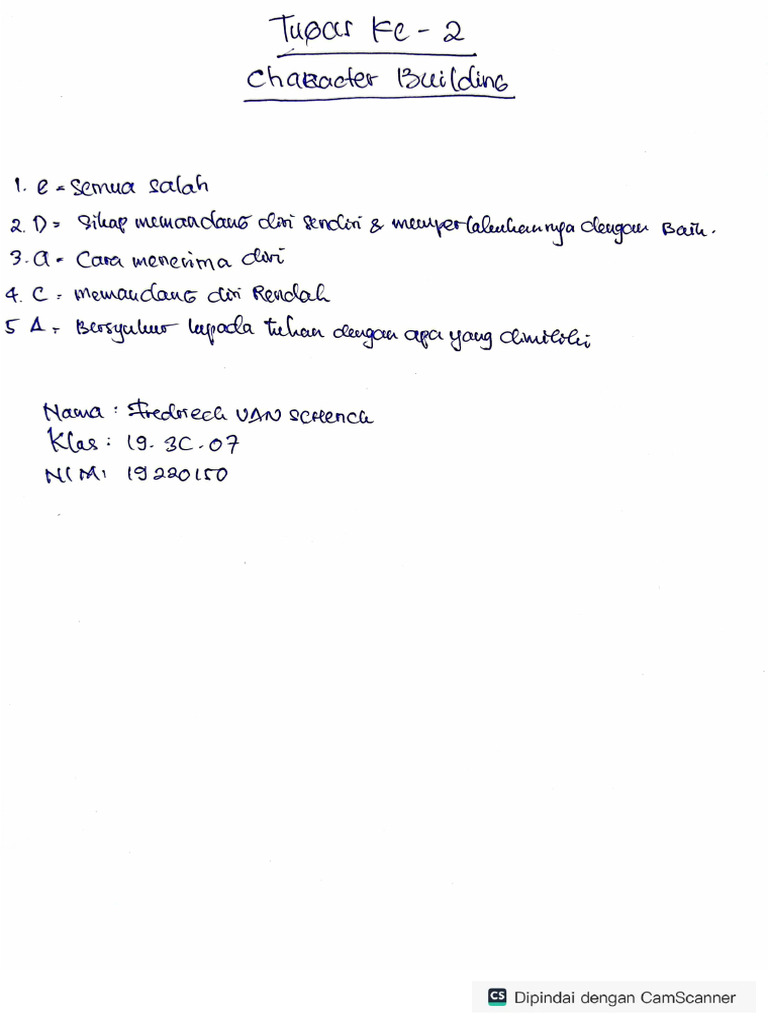 Tugas Ke - 2
Character Building
1. e = Semua salah
2. D = Sikap memandang diri sendiri & memperlakukannya dengan Baik.
3. a = Cara menerima diri
4. C = memandang diri Rendah
5 A = Bersyukur kepada tuhan dengan apa yang dimiliki
Nama : Fredrieck VAN SCHENCK
Klas : 19. 3C. 07
NIM : 19220150
CS Dipindai dengan CamScanner